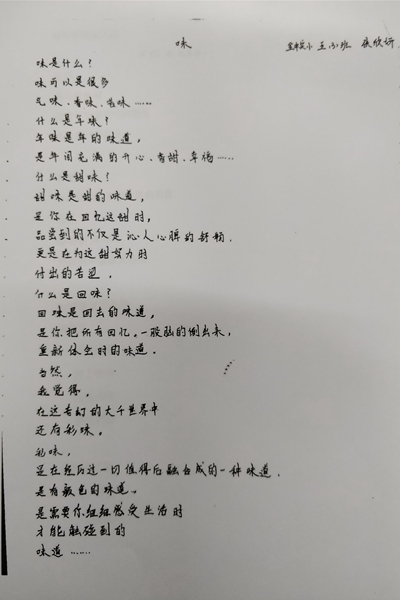 味
五(3)班 欣妍
味是什么?
味可以是很多
气味、香味、吃味……
什么是年味?
年味是年的味道,
是年间充满的开心、香甜、幸福……
什么是甜味?
甜味是甜的味道,
是你在回忆这甜时,
品尝到的不仅是沁人心脾的舒畅
更是在为这甜努力时
付出的苦涩.
什么是回味?
回味是回去的味道,
是你把所有回忆,一股脑的倒出来,
重新体会时的味道.
当然,
我觉得,
在这奇幻的大千世界中
还有彩味。
彩味,
是在经历过一切值得后融合成的一种味道.
是有颜色的味道。
是需要你细细感受生活时
才能触碰到的
味道……